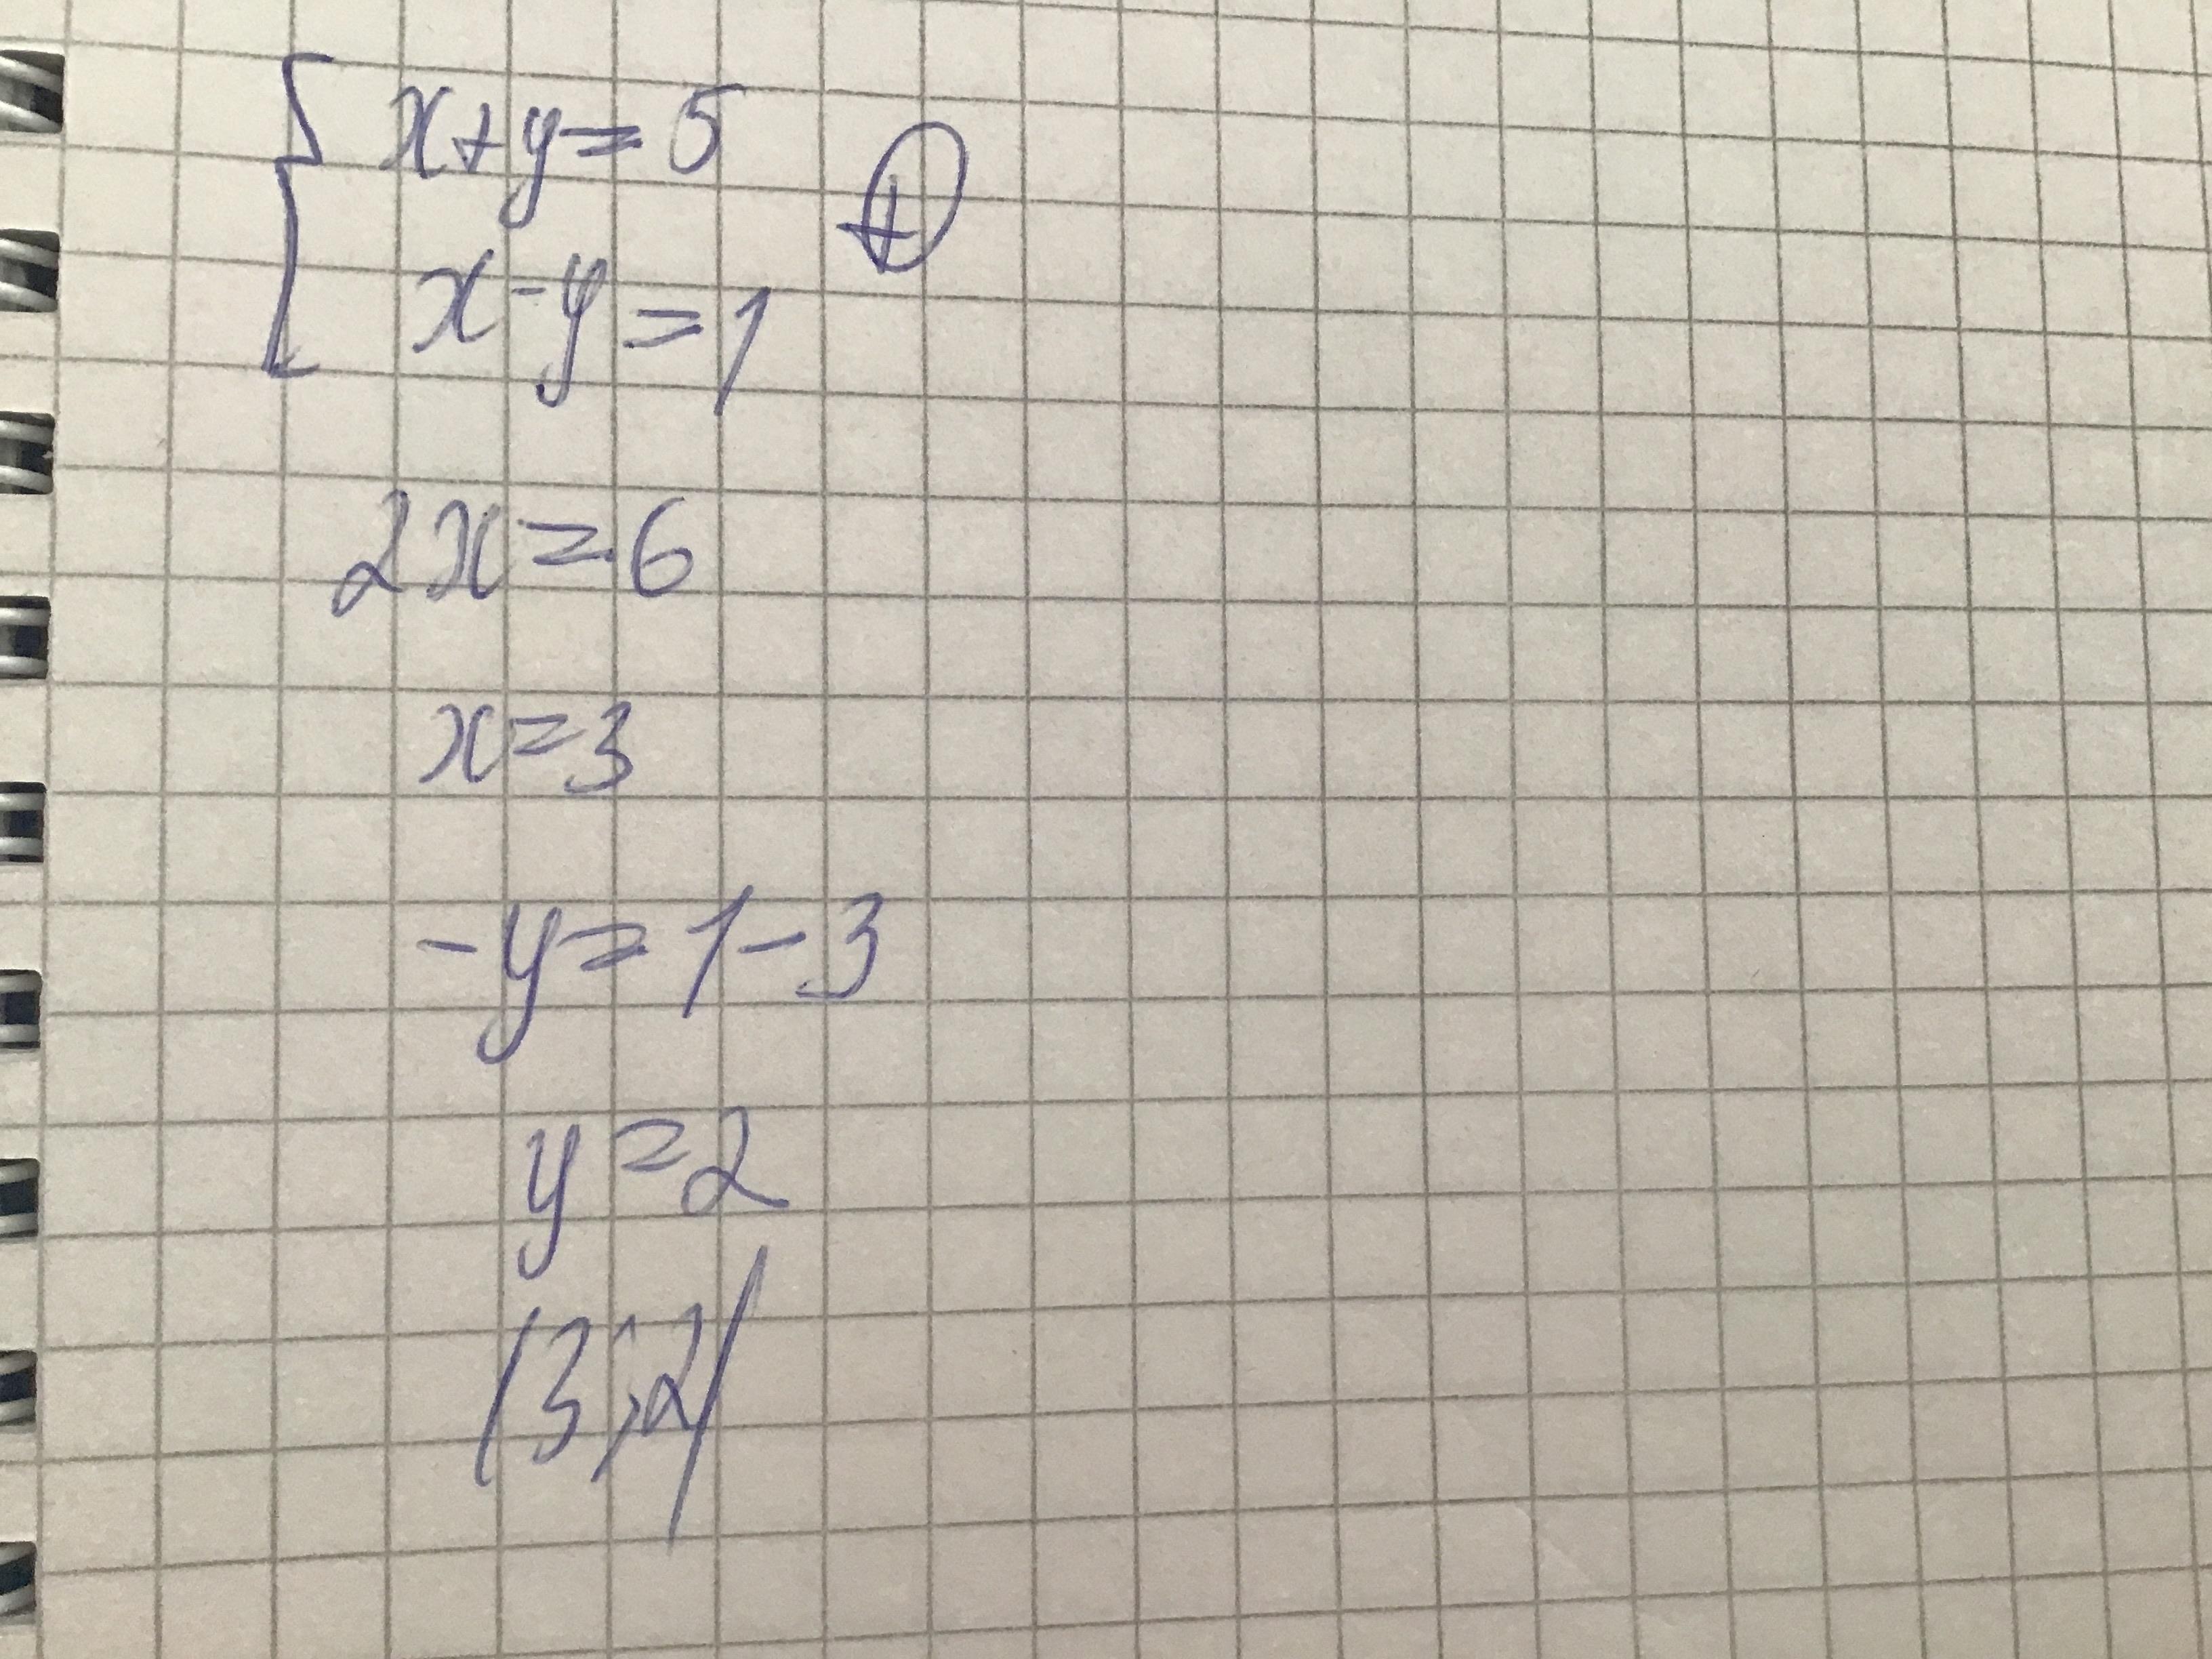 { x+y=5 ⊕
x-y=1
2x=6
x=3
-y=1-3
y=2
(3;2)